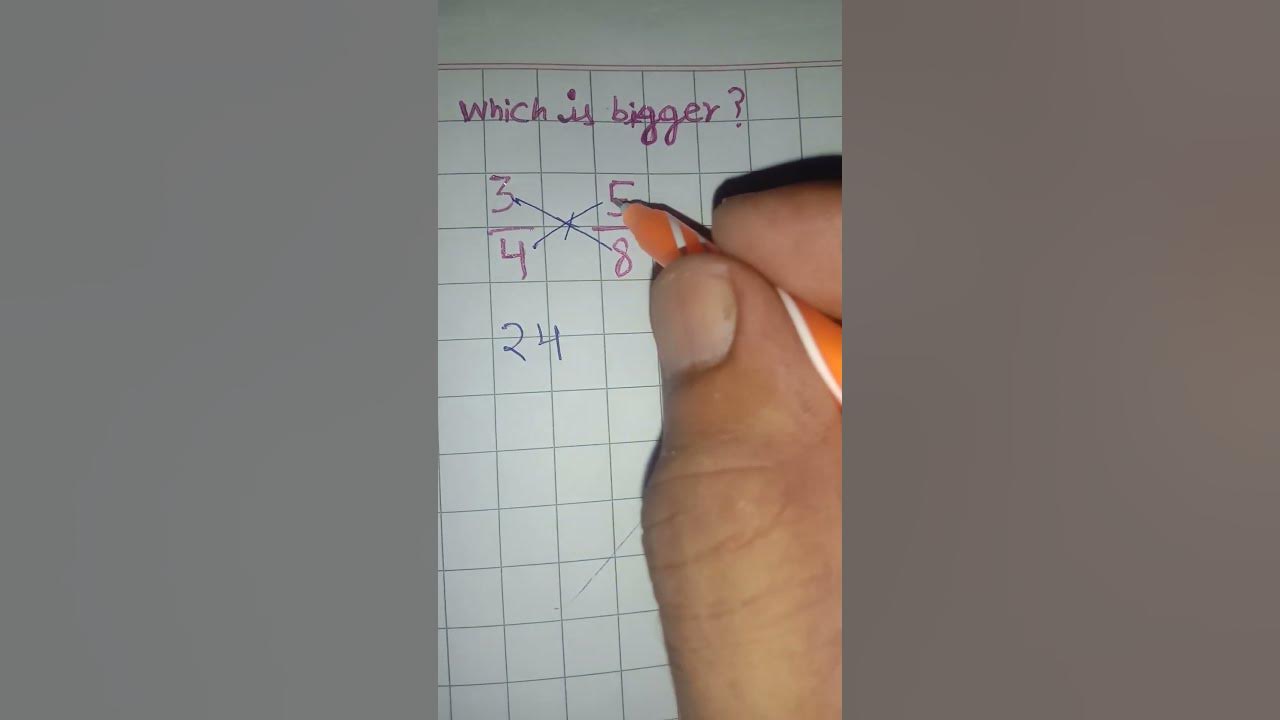 Which is bigger?
3 5
4 8
24